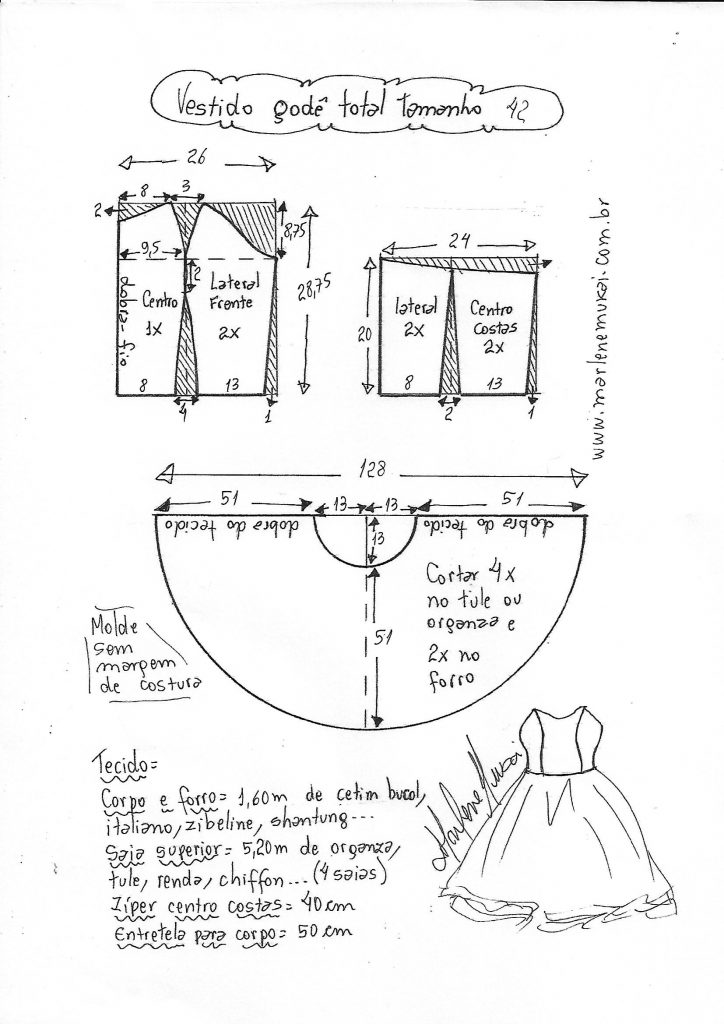 Vestido godê total tamanho 42
26
8 3
2
8,75
9,5
2
28,75
Centro
1x
Lateral
Frente
2x
dobra-fio
8 13
4 1
24
20
lateral
2x
Centro
Costas
2x
8 13
2 1
www.marlenemukai.com.br
128
51 13 13 51
dobra do tecido dobra do tecido
13
51
Cortar 4x
no tule ou
organza e
2x no
forro
Molde
sem
margem
de costura
Tecido=
Corpo e forro= 1,60m de cetim bucol,
italiano, zibeline, shantung...
Saia superior= 5,20m de organza,
tule, renda, chiffon...(4 saias)
Zíper centro costas= 40cm
Entretela para corpo= 50cm
Marlene Mukai